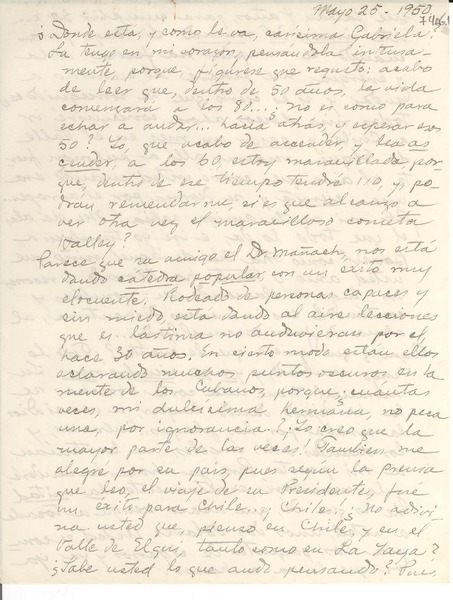 Mayo 25 - 1950
¿Donde está, y como le va, carísima Gabriela?
La tengo en mi corazon, pensándola intensa-
mente, porque, figúrese que regusto: acabo
de leer que, dentro de 50 años, la vida
comenzará a los 80...: no es como para
echar a andar... hacia atrás, y esperar esos
50? Yo, que acabo de ascender, y lea as
cender, a los 60, estoy maravillada por-
que, dentro de ese tiempo tendré 110, y, po-
dran remendarme, si es que alcanzo a
ver otra vez el maravilloso cometa
Halley?
Parece que su amigo el Dr. Mañach, nos está
dando cátedra popular, con un exito muy
elocuente. Rodeado de personas capaces y
sin miedo, esta dando al aire lecciones
que es lástima no anduvieran por el,
hace 30 años. En cierto modo estan ellos
aclarando muchos puntos oscuros en la
mente de los Cubanos, porque ¿cuántas
veces, mi dulcísima hermana, no peca
uno, por ignorancia?. ¡Yo creo que la
mayor parte de las veces! Tambien me
alegro por su pais, pues segun la prensa
que leo, el viaje de su Presidente, fue
un éxito para Chile... ¡Chile!. ¿No adivi
na usted que, pienso en Chile, y en el
Valle de Elqui, tanto como en La Yaya?
¿Sabe usted lo que ando pensando? Pues,